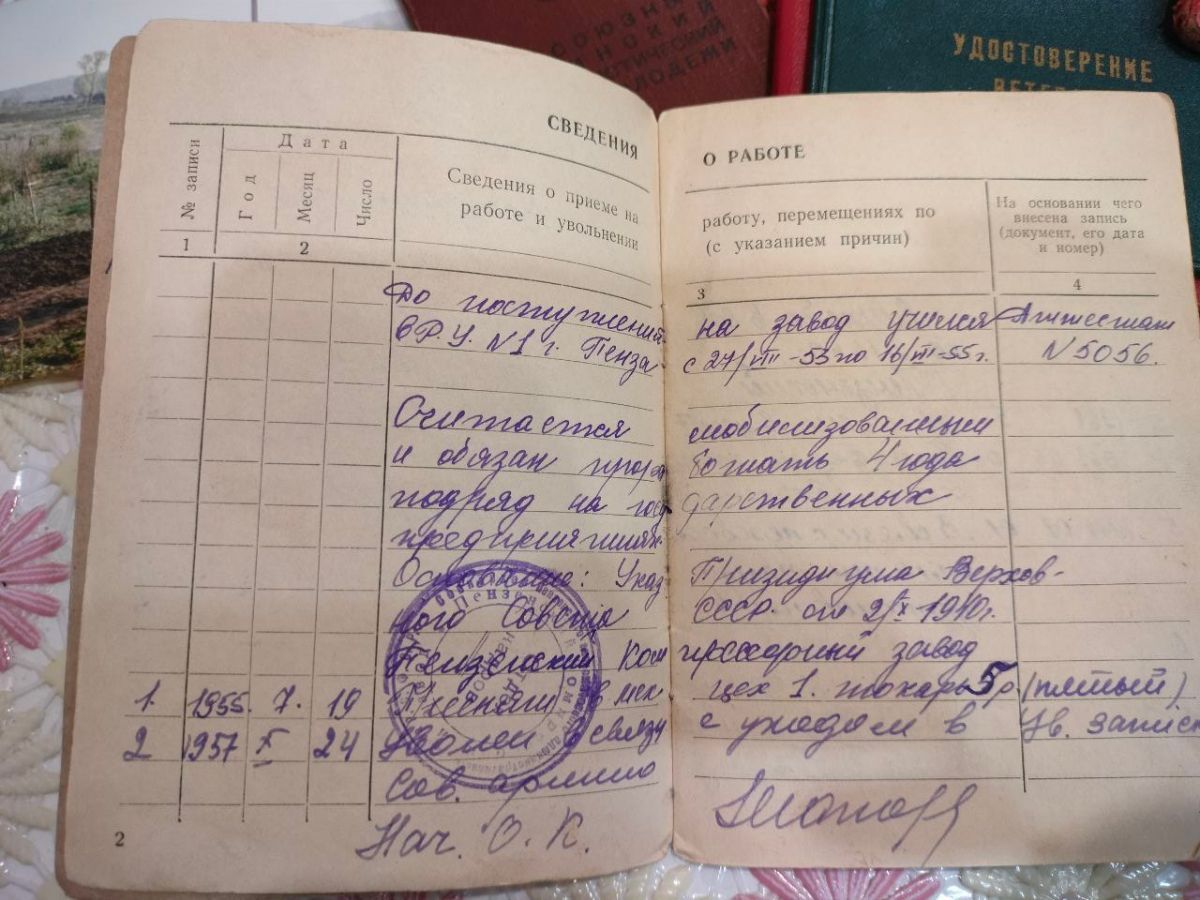 СОЮЗНЫЙ
УДОСТОВЕРЕНИЕ
СВЕДЕНИЯ О РАБОТЕ
№ записи
Дата
Год
Месяц
Число
Сведения о приеме на работу, перемещениях по
работе и увольнении (с указанием причин)
На основании чего
внесена запись
(документ, его дата
и номер)
1 2 3 4
До поступления на завод учился Аттестат
в Р.У. N1 г. Пенза с 27/VIII-53 по 16/VII-55г. N 5056.
Считается мобилизованным
и обязан проработать 4 года
подряд на государственных
предприятиях.
Основание: Указ Призидиума Верхов-
ного Совета СССР. от 2/X 1940г.
Пензенский Компрессорный завод
1. 1955. 7. 19 Принят в мех цех 1. токарь 5р. (пятый)
2 1957 X 24 Уволен в связи с уходом в Ув. запис
Сов. армию
Нач. О. К.
2